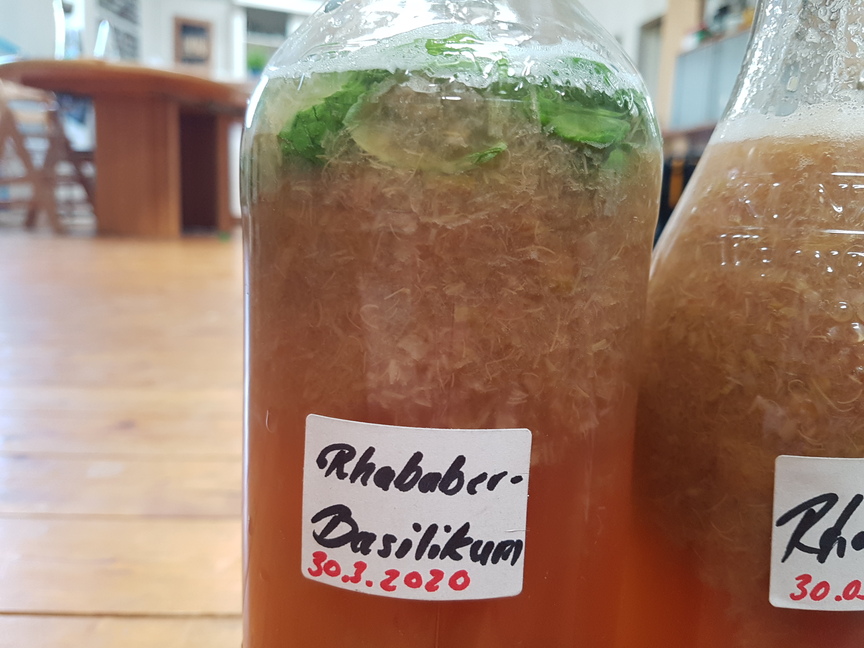 Rhababer-
Basilikum
30.3.2020
Rha
30.03